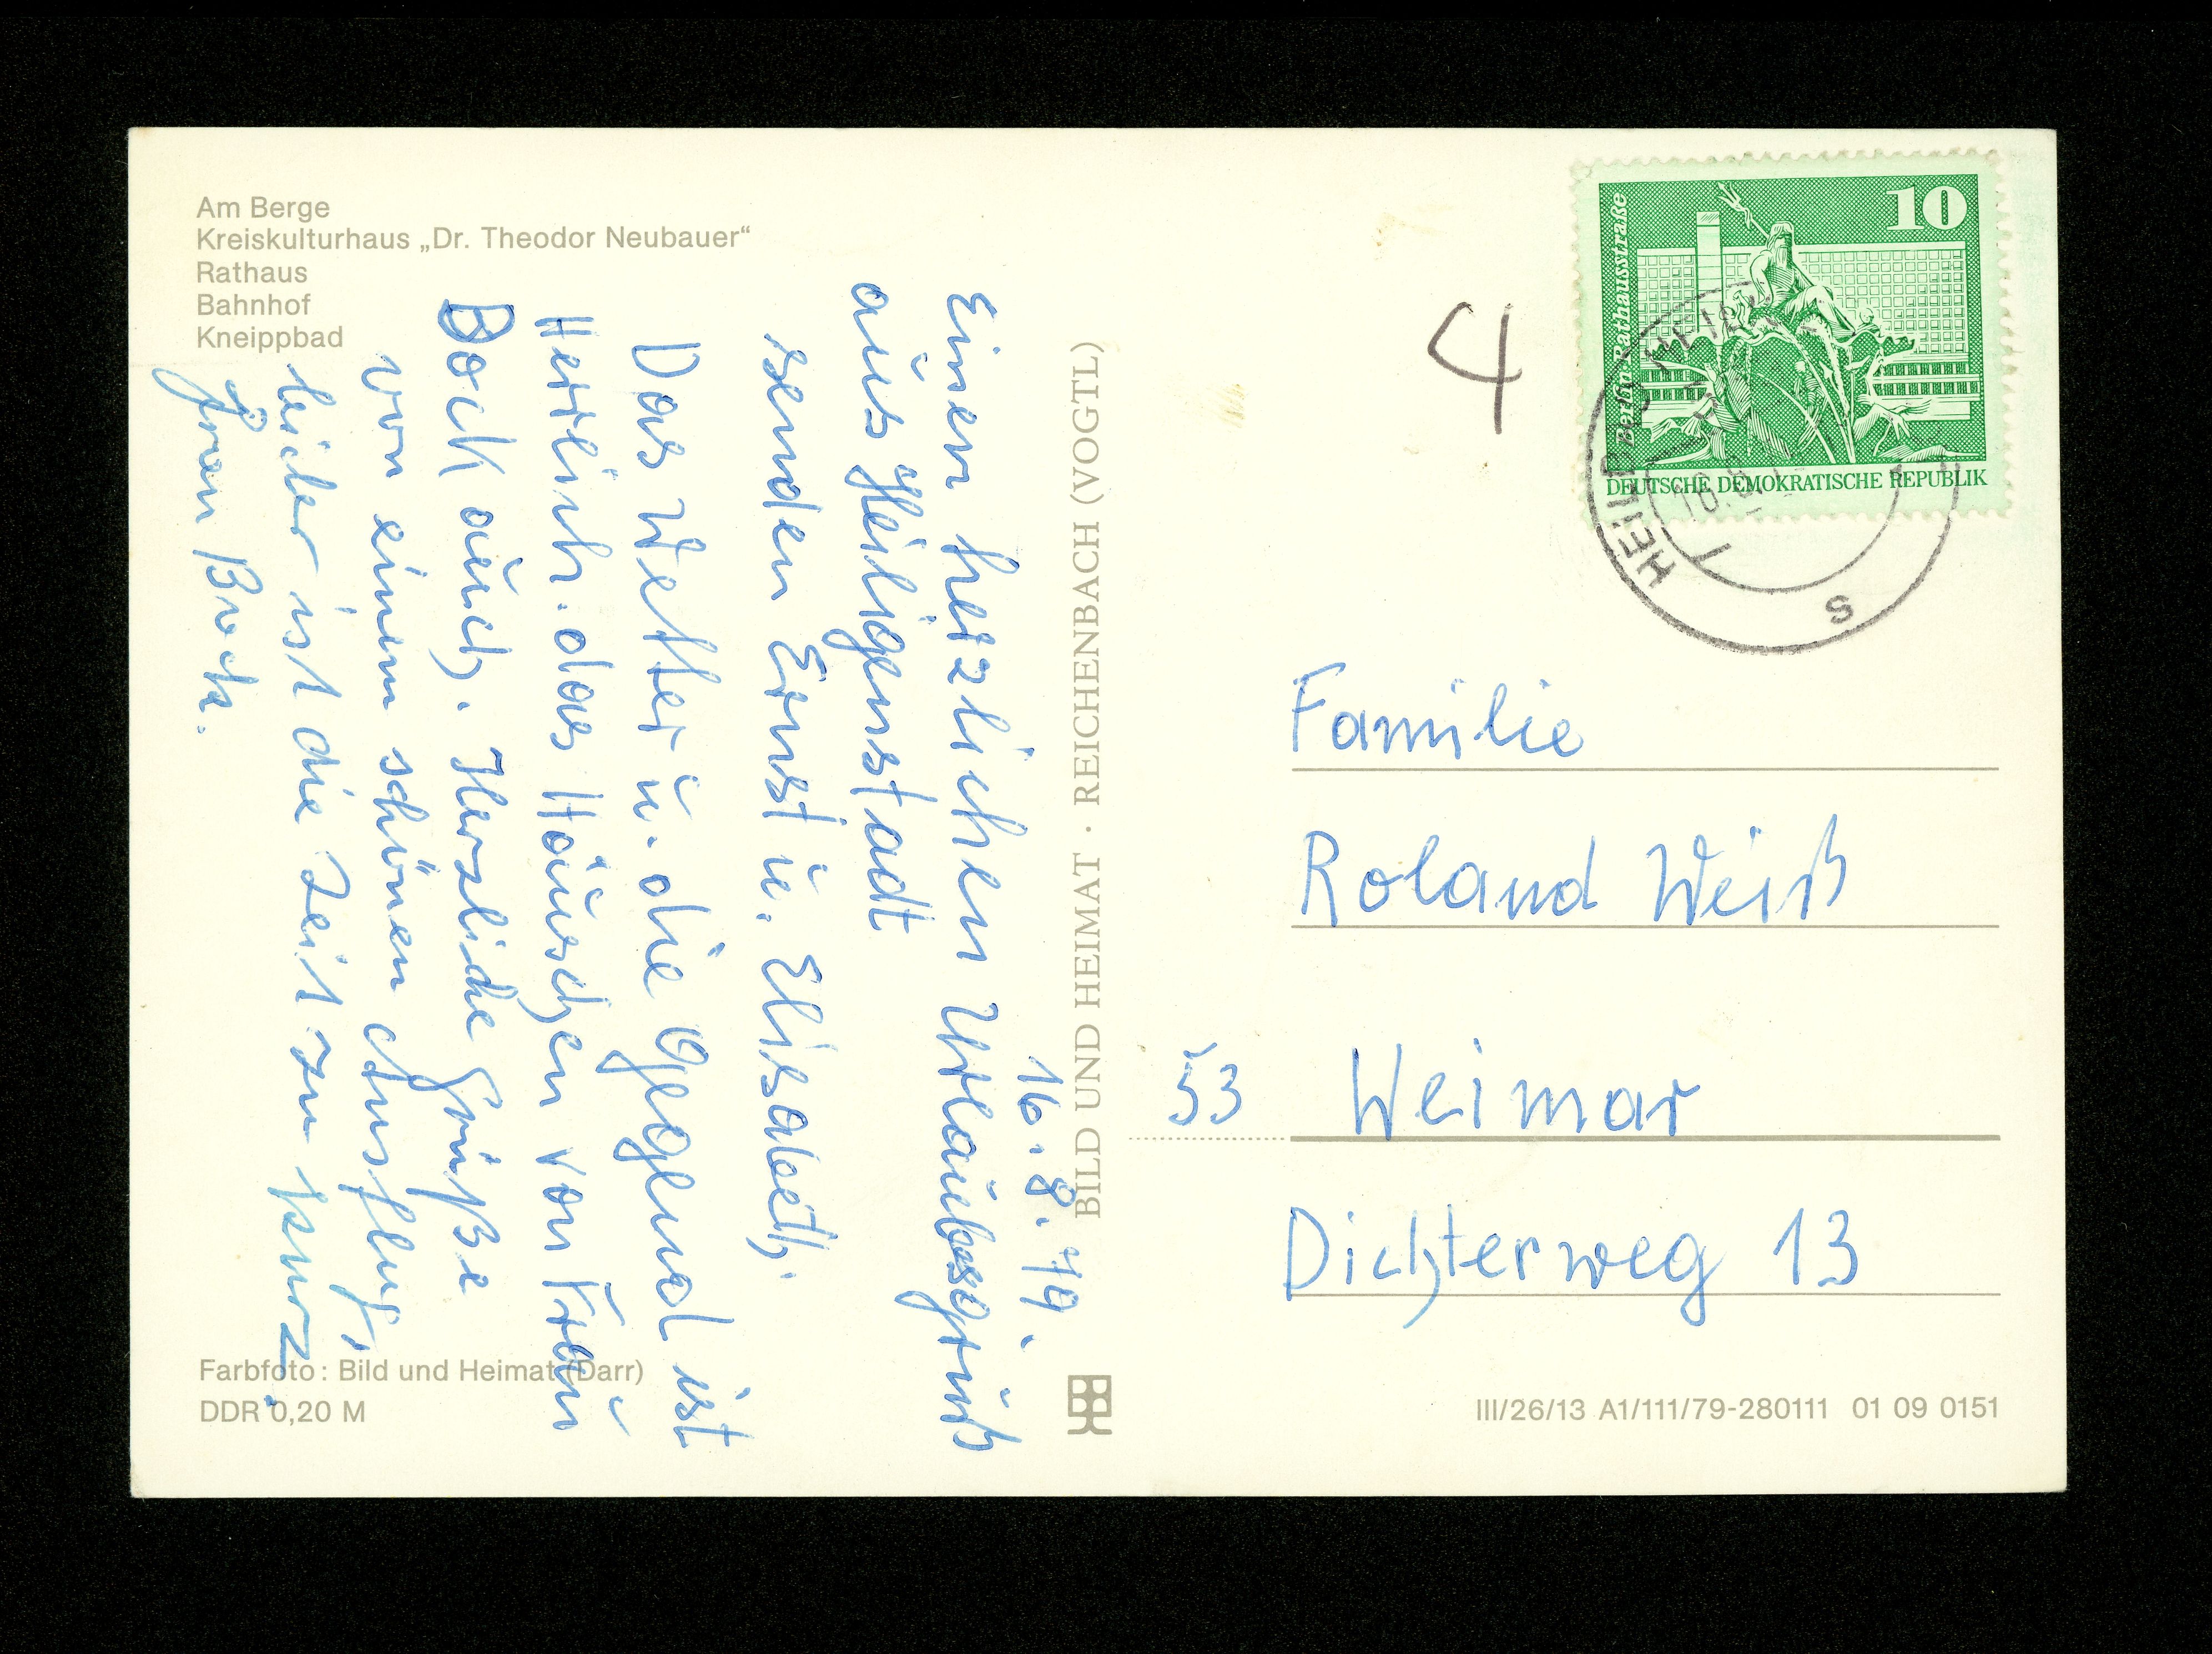 Am Berge
Kreiskulturhaus „Dr. Theodor Neubauer“
Rathaus
Bahnhof
Kneippbad
16.8.79.
Einen herzlichen Urlaubsgruß
aus Heiligenstadt
senden Ernst u. Elisabeth.
Das Wetter u. die Gegend ist
Herrlich. das Häuschen von Frau
Bock auch. Herzliche Grüße
von einem schönen Ausflug,
leider ist die Zeit zu kurz.
Frau Bock.
Farbfoto: Bild und Heimat (Darr)
DDR 0,20 M
BILD UND HEIMAT · REICHENBACH (VOGTL)
4
10
Berlin, Rathausstraße
DEUTSCHE DEMOKRATISCHE REPUBLIK
HEILB
16.8.
s
Familie
Roland Weiß
53 Weimar
Dichterweg 13
III/26/13 A1/111/79-280111 01 09 0151